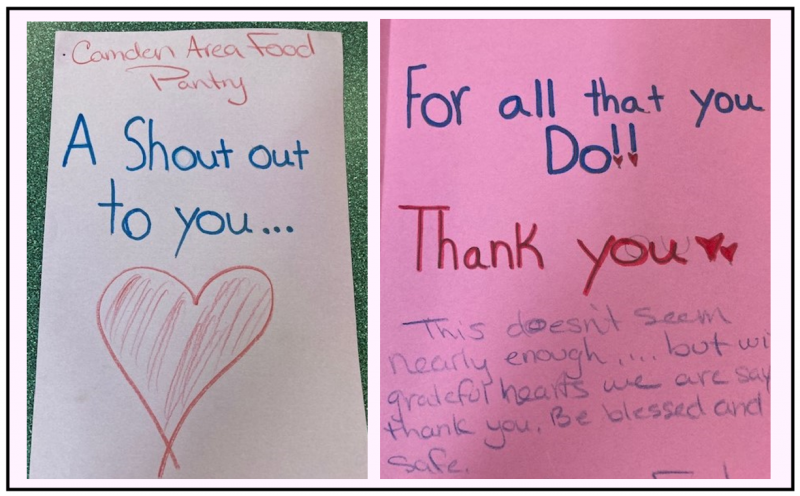 Camden Area Food
Pantry
A Shout out
to you...
For all that you
Do!!
Thank you
This doesn't seem
nearly enough.... but wi
grateful hearts we are say
thank you. Be blessed and
safe.